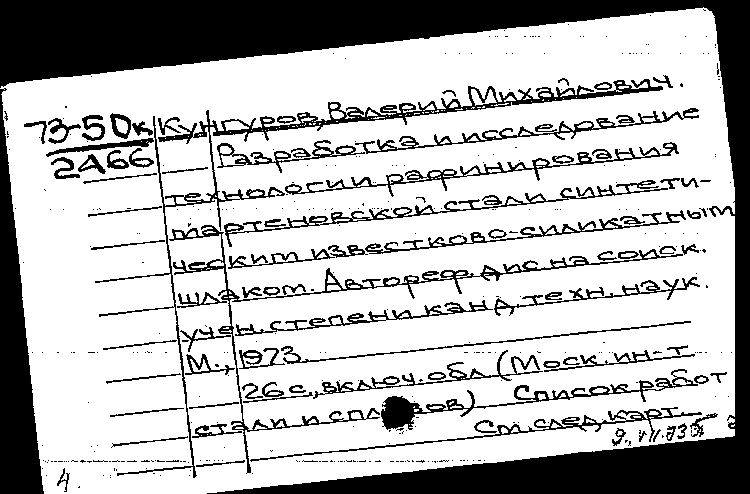 73-5Дк Кунгуров, Валерий Михайлович.
2466 Разработка и исследование
технологии рафинирования
мартеновской стали синтети-
ческим известково-силикатным
шлаком. Автореф. дис. на соиск.
учен. степени канд. техн. наук.
М., 1973.
26 с., включ. обл. (Моск. ин-т
стали и сплавов) Список работ
См. след. карт.
4.